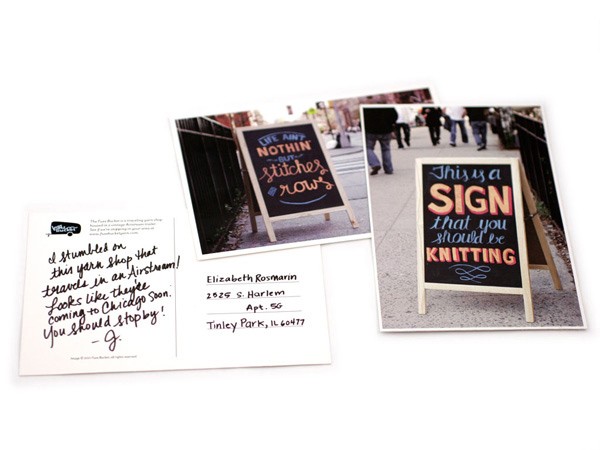 LIFE AIN'T
NOTHIN'
BUT
stitches
&
rows
This is a
SIGN
that you
should be
KNITTING
I stumbled on
this yarn shop that
travels in an Airstream!
Looks like they're
coming to Chicago soon.
You should stop by!
- J.
Elizabeth Rosmarin
2525 S. Harlem
Apt. 5G
Tinley Park, IL 60477